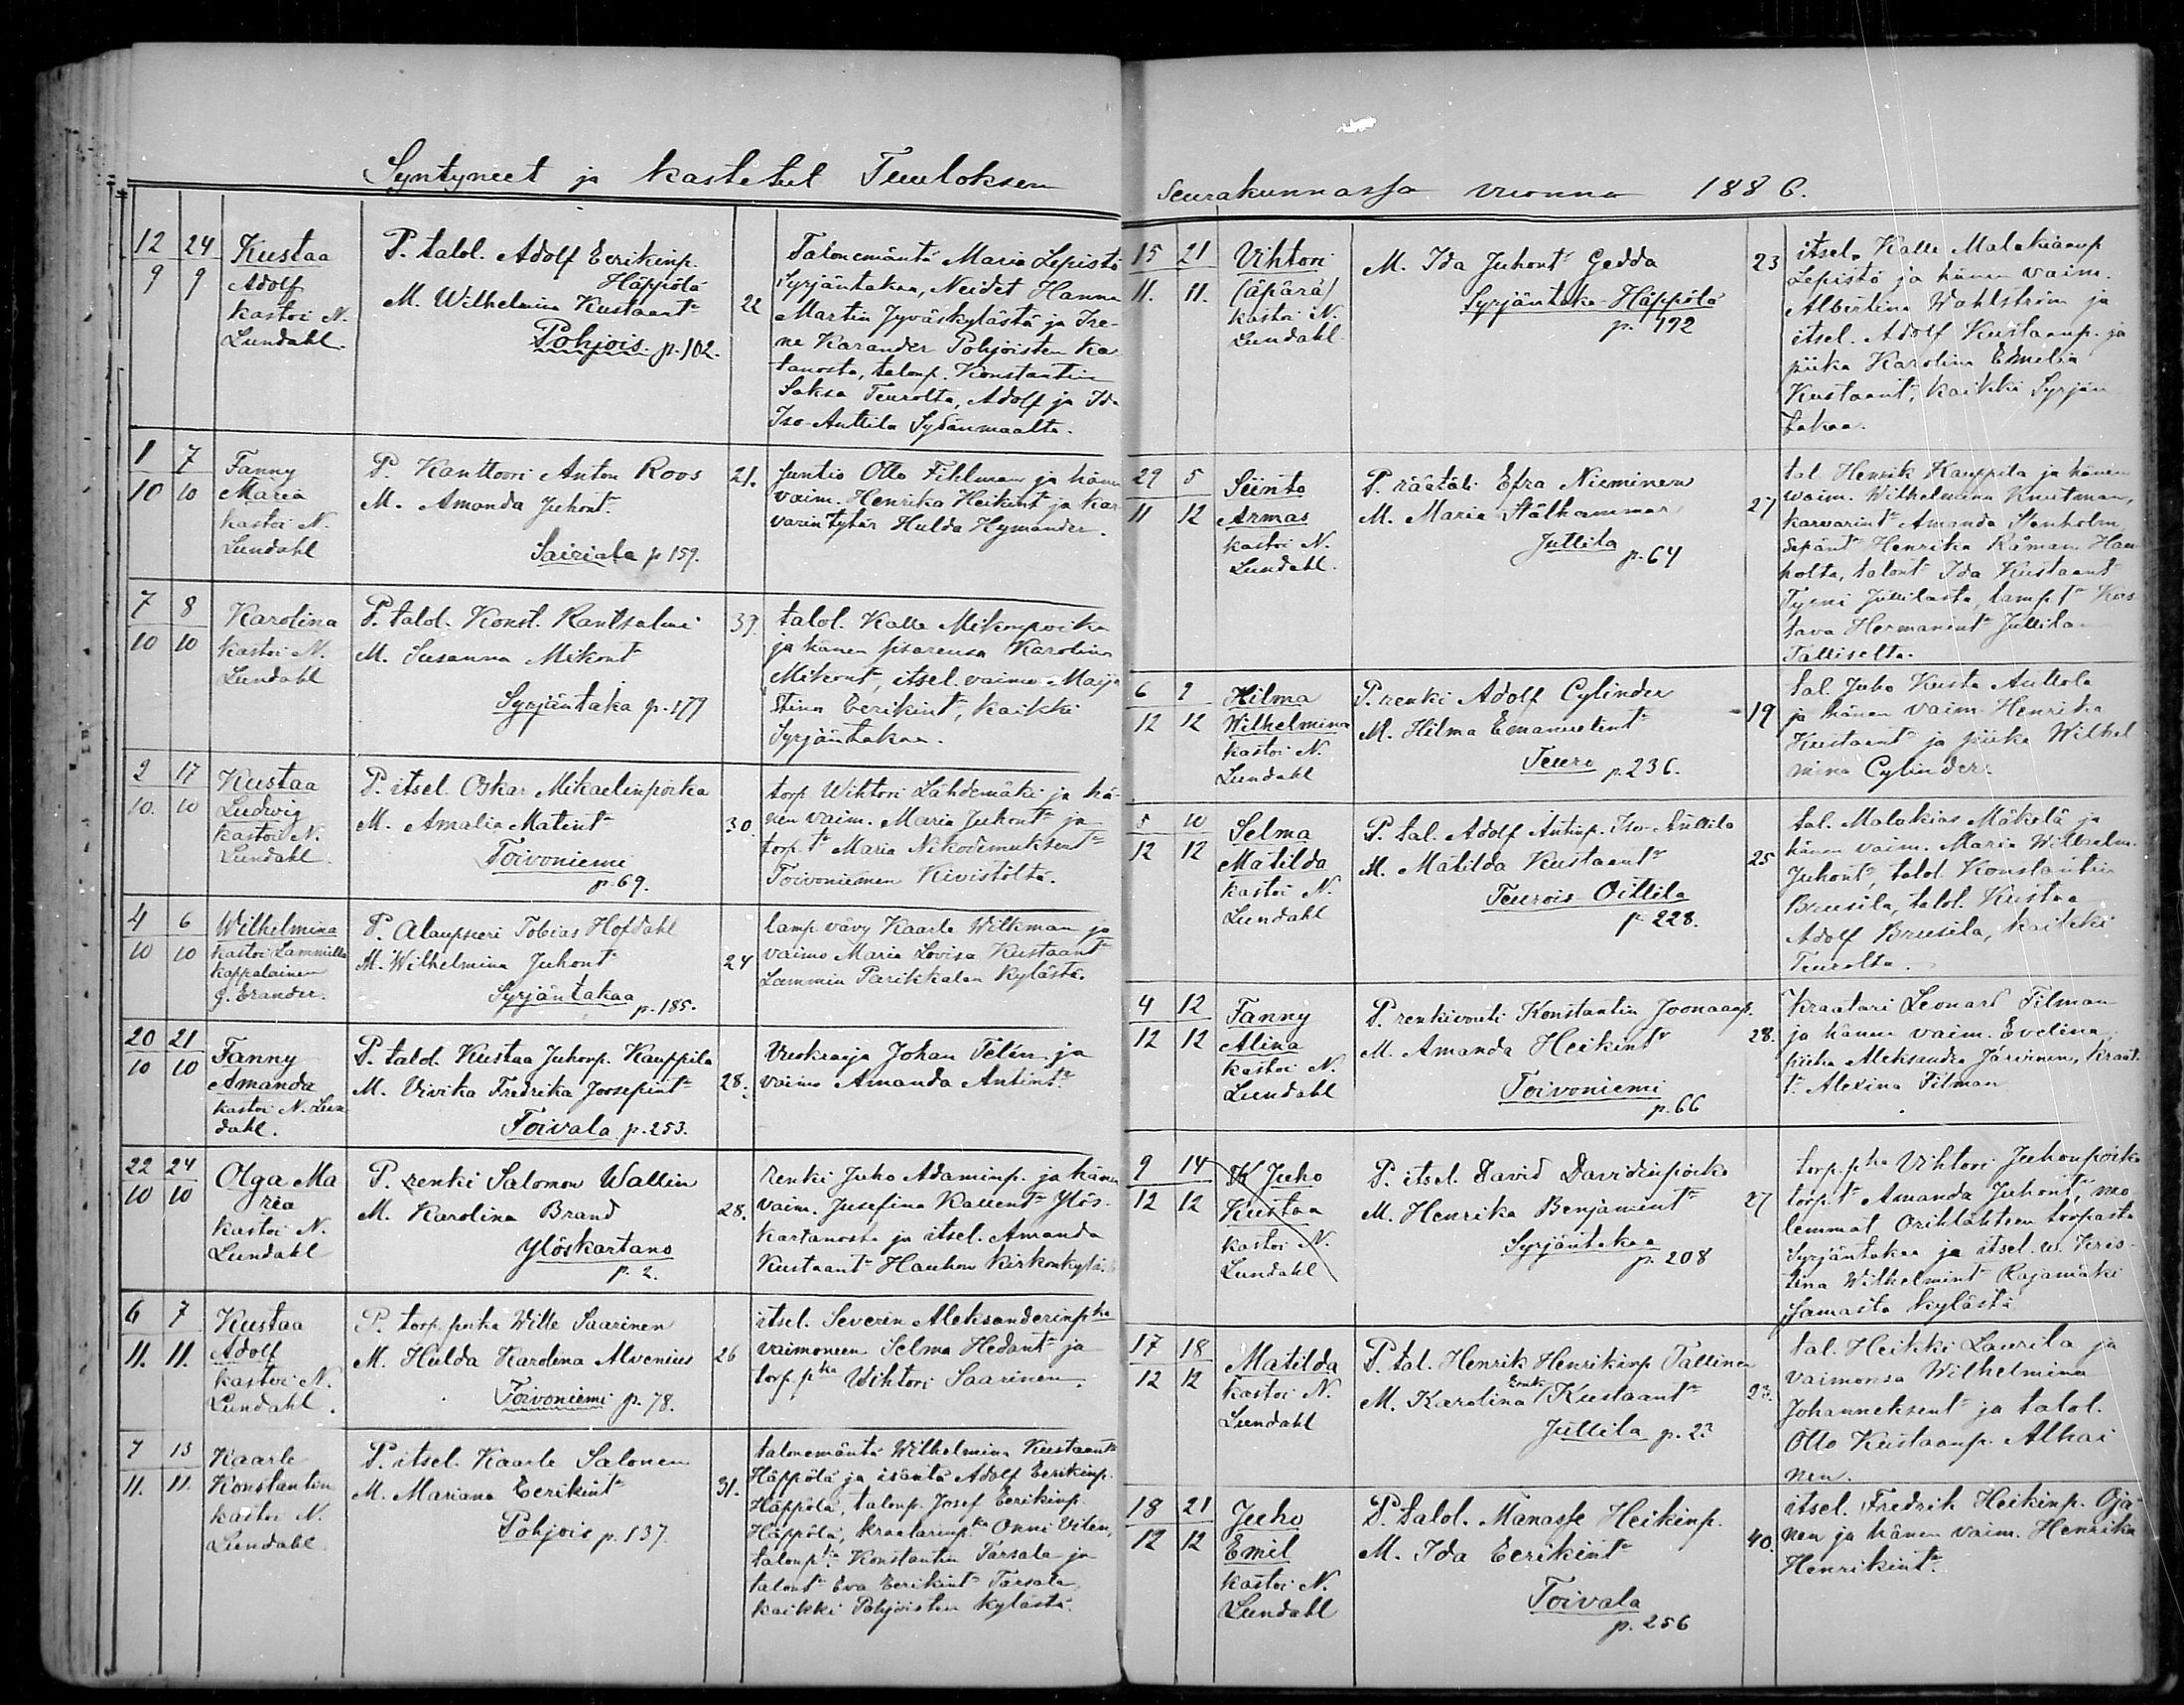 Syntyneet ja kastetut Tuuloksen
12 24 Kustaa P. talol. Adolf Eerikinp. Talonemäntä Maria Lepistö
9 9 Adolf Häppölä Syrjäntakaa, Neidet Hanna
kastoi N. M. Wilhelmina Kustaant. 22 Martin Jyväskylästä ja Ire-
Lundahl. Pohjois. p. 102. ne Karander Pohjoisten kar
tanosta, talonp. Konstantin
Saksa Teurolta, Adolf ja Ida
Iso-Anttila Sydänmaalta.
1 7 Fanny P. Kanttoori Anton Roos 21. Suntio Otto Fihlman ja hänen
10 10 Maria M. Amanda Juhont. vaim. Henrika Heikint ja kar
kastoi N. varin tytär Hulda Hymander.
Lundahl Sairiala p 159.
7 8 Karolina P. talol. Konst. Rantsalmi 39. talol. Kalle Mikonpoika
10 10 kastoi N. M. Susanna Mikont ja hänen sisarensa Karolina
Lundahl Mikont, itsel. vaimo Maija
Syrjäntaka p. 177 Stina Eerikint, kaikki
Syrjäntakaa.
2 17 Kustaa P. itsel. Oskar Mikaelinpoika torp Wihtori Lähdemäki ja hä-
10. 10 Ludwig M. Amalia Matint 30. nen vaim. Maria Juhont ja
kastoi N. torp. t. Maria Nikodemuksent
Lundahl. Toivoniemi Toivoniemen Kivistöltä.
p. 69.
4 6 Wilhelmina P. Alaupseeri Tobias Hofdahl lamp vävy Kaarle Wilkman ja
10 10 kastoi Lammilla M. Wilhelmina Juhont 24 vaimo Maria Lovisa Kustaant
kappalainen Syrjäntakaa Lammin Parikkalan kylästä.
J. Erander. p. 185.
20 21 Fanny P. talol. Kustaa Juhonp. Kauppila Vuokraaja Johan Telén ja
10 10 Amanda M. Vivika Fredrika Joosepint 28. vaimo Amanda Antint.
kastoi N. Lun
dahl. Toivala p. 253.
22 24 Olga Ma P. renki Salomon Wallin renki Juho Adaminp. ja hänen
10 10 ria M. Karolina Brand 28. vaim. Josefina Kallent Ylös-
kastoi N. Ylöskartano kartanosta ja itsel. Amanda
Lundahl p. 2. Kustaant Hauhon kirkonkylä.
6 7 Kustaa P. torp. poika Wille Saarinen itsel. Severin Aleksanderinpka
11. 11. Adolf M. Hulda Karolina Alvenius 26 vaimoneen Selma Hedant ja
kastoi N. Toivoniemi p. 78. torp. pka Wihtori Saarinen.
Lundahl.
7 13 Kaarle P. itsel. Kaarle Salonen talonemäntä Wilhelmina Kustaant
11. 11. Konstantin M. Mariana Eerikint 31. Häppölä ja isäntä Adolf Eerikinp.
kastoi N. Pohjois p. 137. Häppölä, talonp. Josef Eerikinp.
Lundahl. Häppölä, kraatarinp.ka Onni Vilen,
talonp.ka Konstantin Tarsala ja
talont. Eva Eerikint Tarsala,
kaikki Pohjoisten kylästä.
Seurakunnassa vuonna 1886.
15 21 Vihtori M. Ida Juhont Gedda 23 itsel. Kalle Malakiaanp
11. 11. (äpärä) Syrjäntaka-Häppölä Lepistö ja hänen vaim.
kastoi N. p. 192 Albertina Wahlström ja
Lundahl. itsel. Adolf Kustaanp. ja
piika Karolina Emelia
Kustaant, kaikki Syrjän
takaa.
29 5 Siinto P. räätäli Efra Nieminen tal. Henrik Kauppila ja hänen
11 12 Armas M. Maria Stålhammar 27 vaim. Wilhelmina Knutman,
kastoi N. Juttila karvarint Amanda Stenholm,
Lundahl. p. 64 sepänt Henrika Råman Hau-
holta, talont Ida Kustaant
Tyrni Juttilasta, lamp. t Kus
tava Hermanint Juttilan
Talliselta.
6 9 Hilma P. renki Adolf Cylinder tal. Juho Kusta Anttola
12 12 Wilhelmina M. Hilma Emanuelint 19 ja hänen vaim. Henrika
kastoi N. Teuro p. 236. Kustaant ja piika Wilhel
Lundahl mina Cylinder.
5 10 Selma P. tal. Adolf Antinp. Iso-Anttila tal. Malakias Mäkelä ja
12 12 Matilda M. Matilda Kustaant 25 hänen vaim. Maria Wilhelm.
kastoi N. Teurois Oittila Juhont, talol. Konstantin
Lundahl p. 228. Brusila, talol. Kustaa
Adolf Brusila, kaikki
Teurolta.
4 12 Fanny P. renkivouti Konstantin Joonaanp. Kraatari Leonard Filman
12 12 Alina M. Amanda Heikint 28. ja hänen vaim. Evelina,
kastoi N. Toivoniemi piika Aleksandra Järvinen, kraat.
Lundahl p. 66 t. Alexina Filman
9 14 K Juho P. itsel. David Davidinpoika torp. pka Vihtori Juhonpoika
12 12 Kustaa M. Henrika Benjamint 27 torp. t Amanda Juhont, mo
kastoi N. Syrjäntakaa lemmat Orihlahteen torpasta
Lundahl p. 208 Syrjäntakaa ja itsel. w. Kris-
tina Wilhelmint Rajamäki
samasta kylästä
17 18 Matilda P. tal. Henrik Henrikinp Tallinen tal. Heikki Laurila ja
12 12 kastoi N. M. Karolina Kustaant 23. vaimonsa Wilhelmina
Lundahl Juttila p. 23 Johanneksent ja talol.
Otto Kustaanp. Alhai
nen.
18 21 Juho P. talol. Manasse Heikinp. itsel. Fredrik Heikinp. Oja-
12 12 Emil M. Ida Eerikint 40. nen ja hänen vaim. Henrika
kastoi N. Toivala Henrikint.
Lundahl p. 256